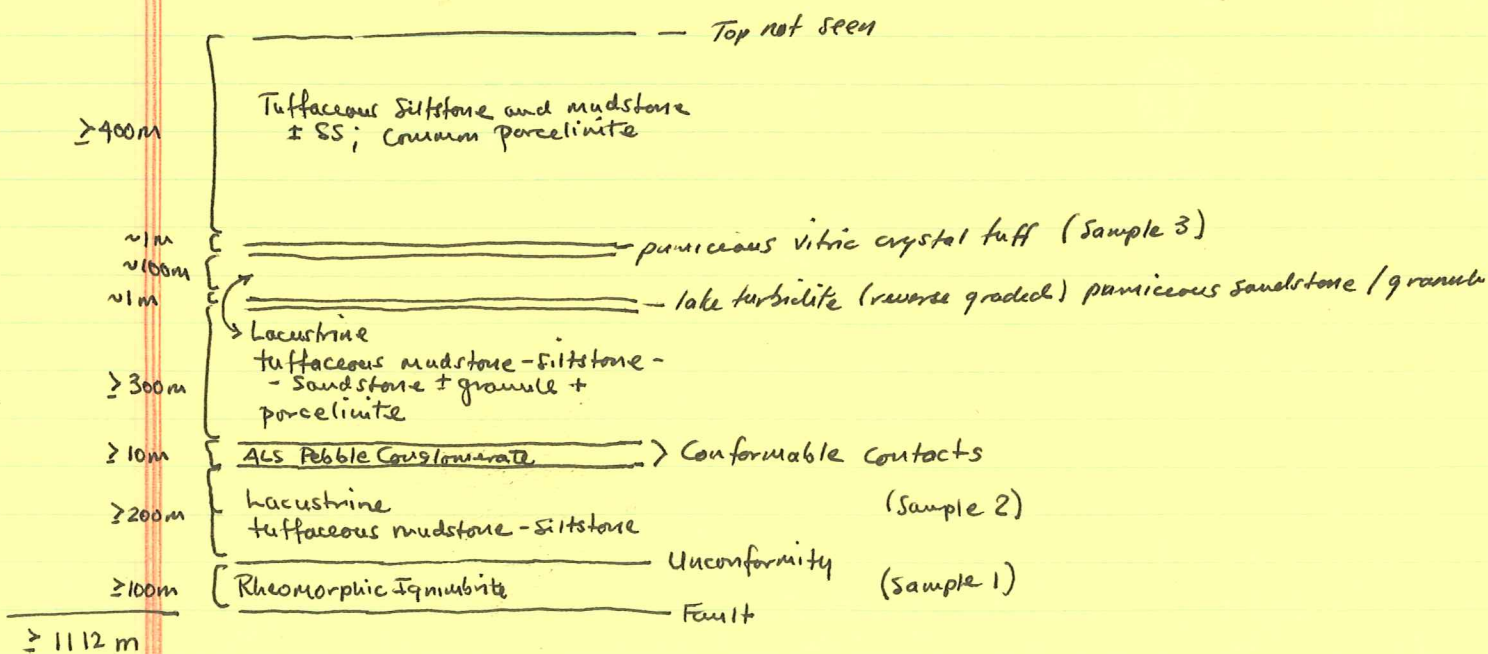 Top not seen
≥400m
Tuffaceous Siltstone and mudstone
± SS; Common porcelinite
~1m
pumiceous vitric crystal tuff (Sample 3)
~100m
~1m
lake turbidite (reverse graded) pumiceous sandstone/granule
Lacustrine
tuffaceous mudstone-siltstone-
- Sandstone ± granule +
porcelinite
≥300m
≥10m
ALS Pebble Conglomerate
Conformable contacts
≥200m
Lacustrine
tuffaceous mudstone-siltstone
(Sample 2)
Unconformity
≥100m
Rheomorphic Ignimbrite
(Sample 1)
Fault
≥ 1112 m